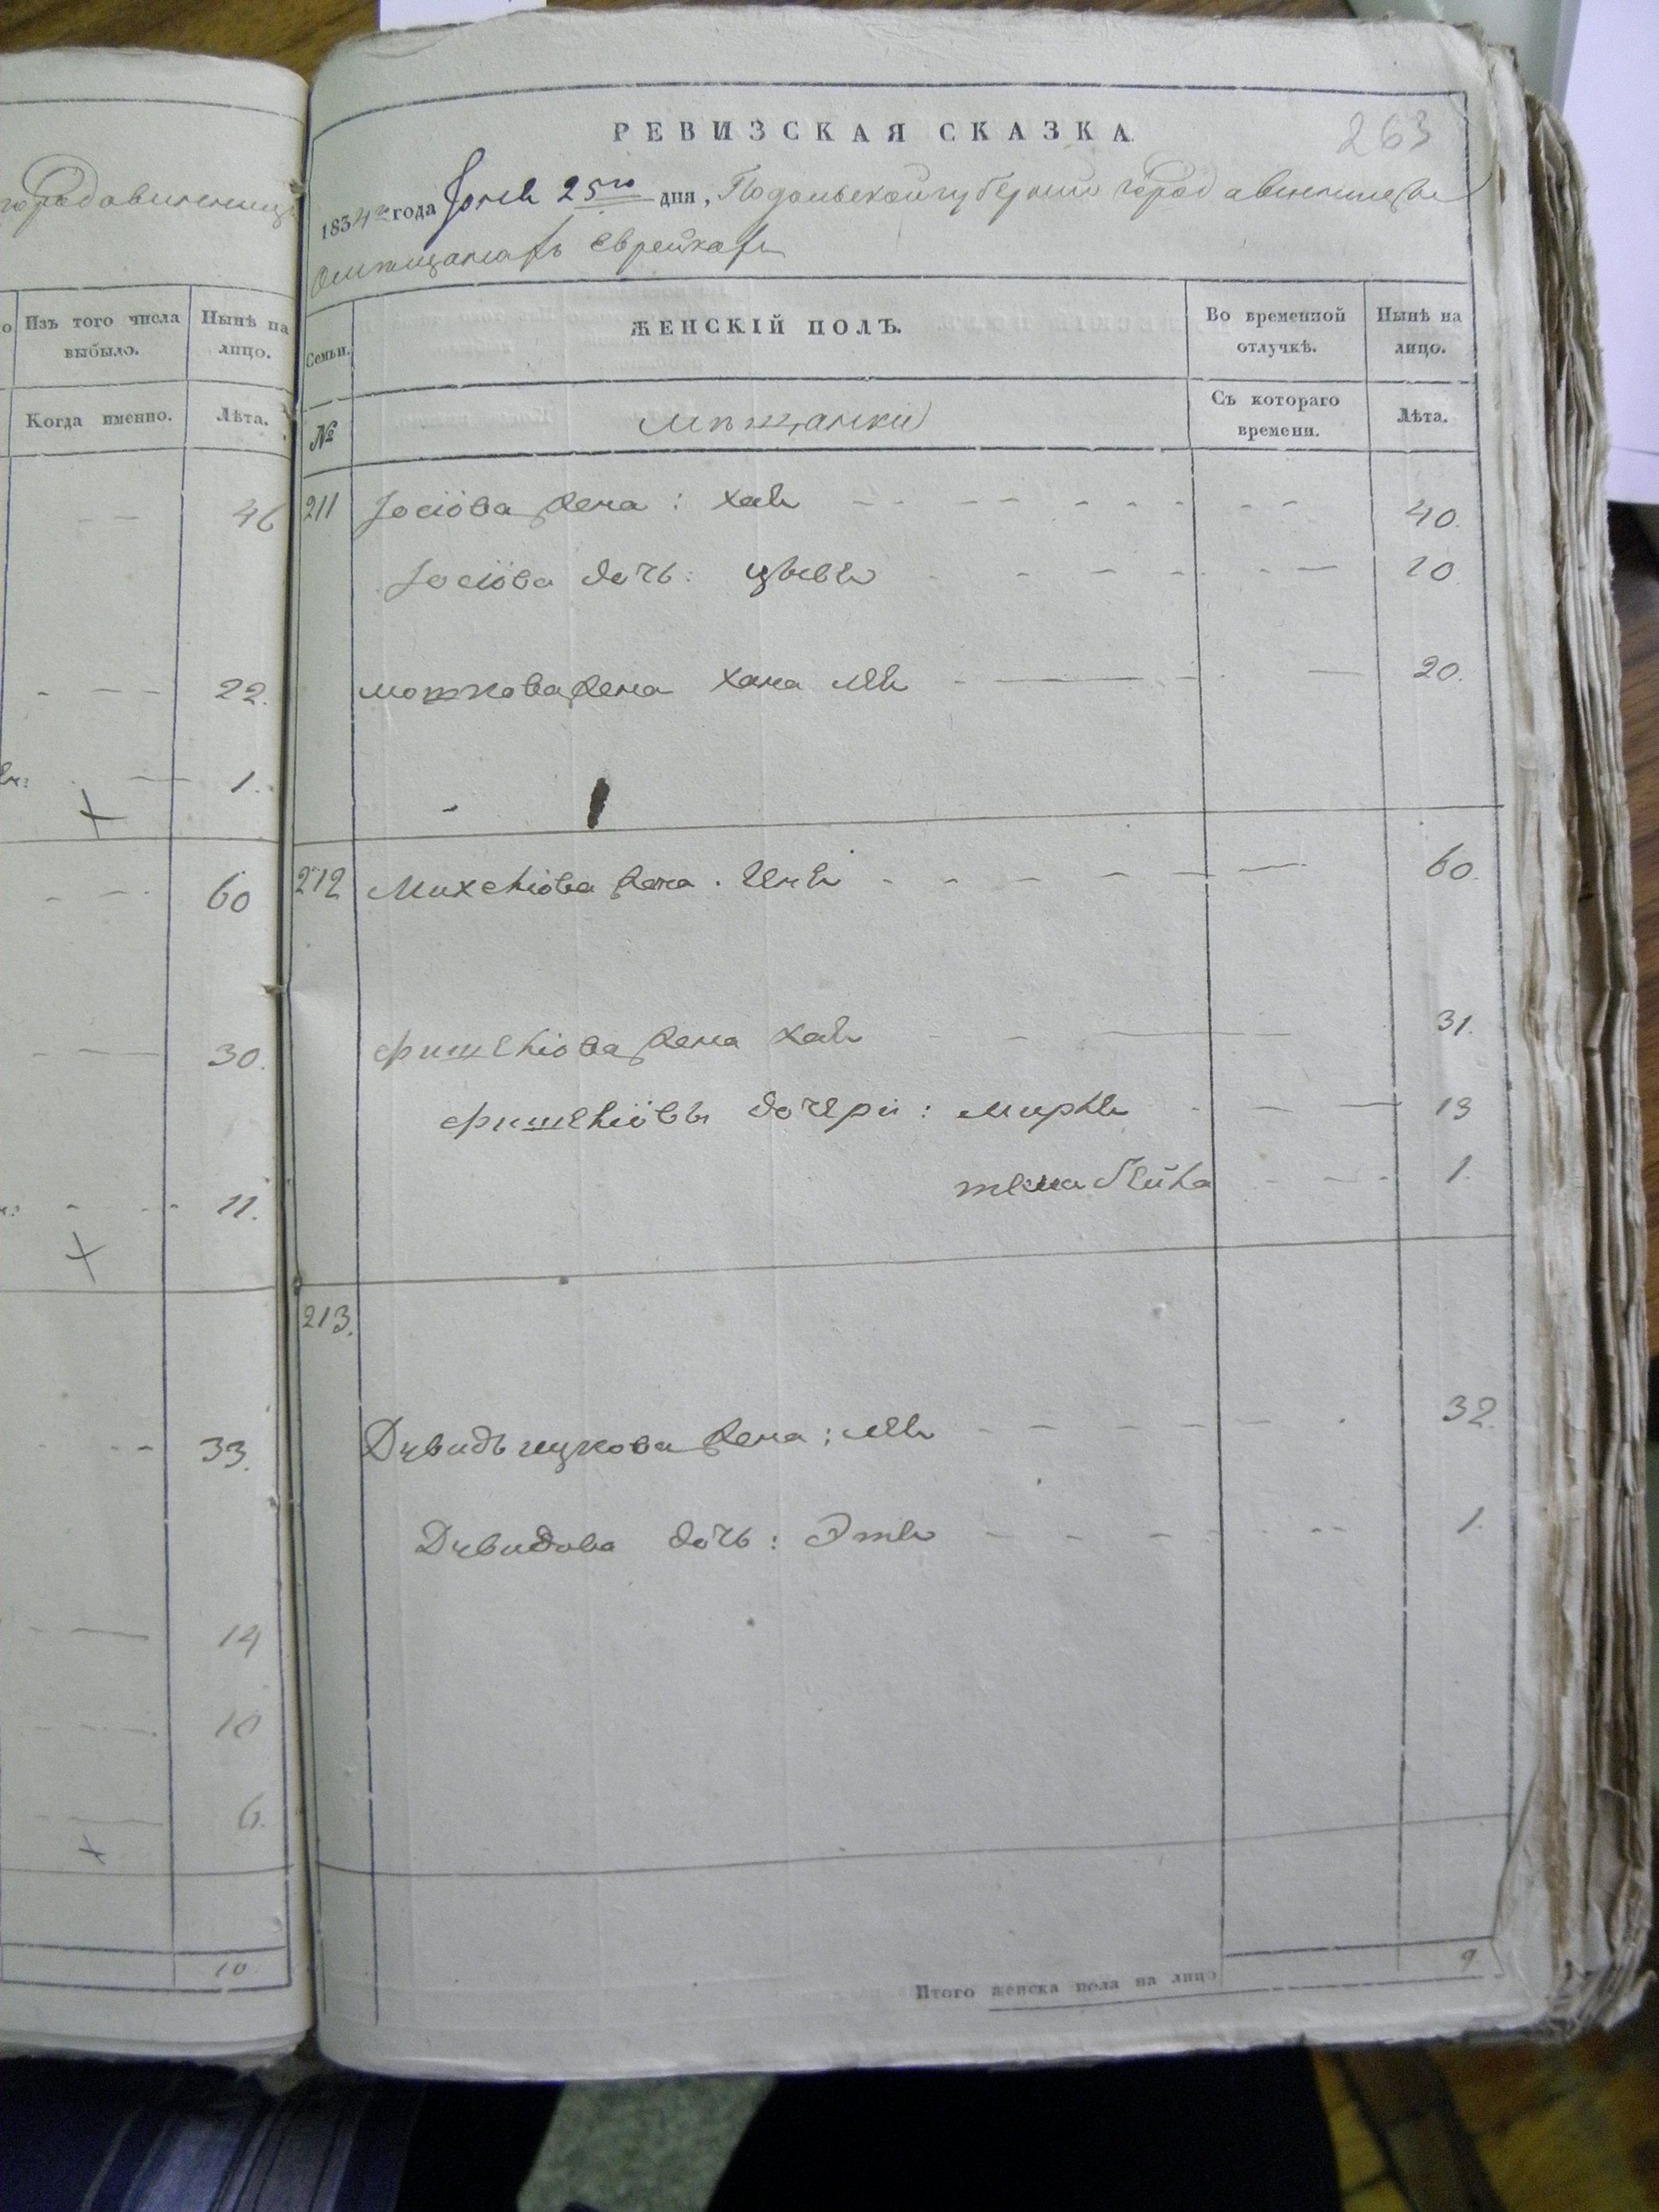 города винницы
Изъ того числа выбыло.
Нынѣ на лицо.
Когда именно.
Лѣта.
46
22.
1.
60
30.
11.
33.
14
10
6.
10
263
РЕВИЗСКАЯ СКАЗКА
1834го года Іюня 25го дня, Подольской губерніи города винницы
о мѣщанахъ Еврейкахъ
Семьи.
ЖЕНСКІЙ ПОЛЪ.
Во временной отлучкѣ.
Нынѣ на лицо.
№
мѣщанки
Съ котораго времени.
Лѣта.
211 Іосіова жена: хая 40.
Іосіова дочь: 10.
мошкова жена хана лея 20.
212 жена. 60.
жена хая 31.
дочери: 13
1.
213.
жена: лея 32.
Давидова дочь: Этя 1.
Итого женска пола на лицо 9